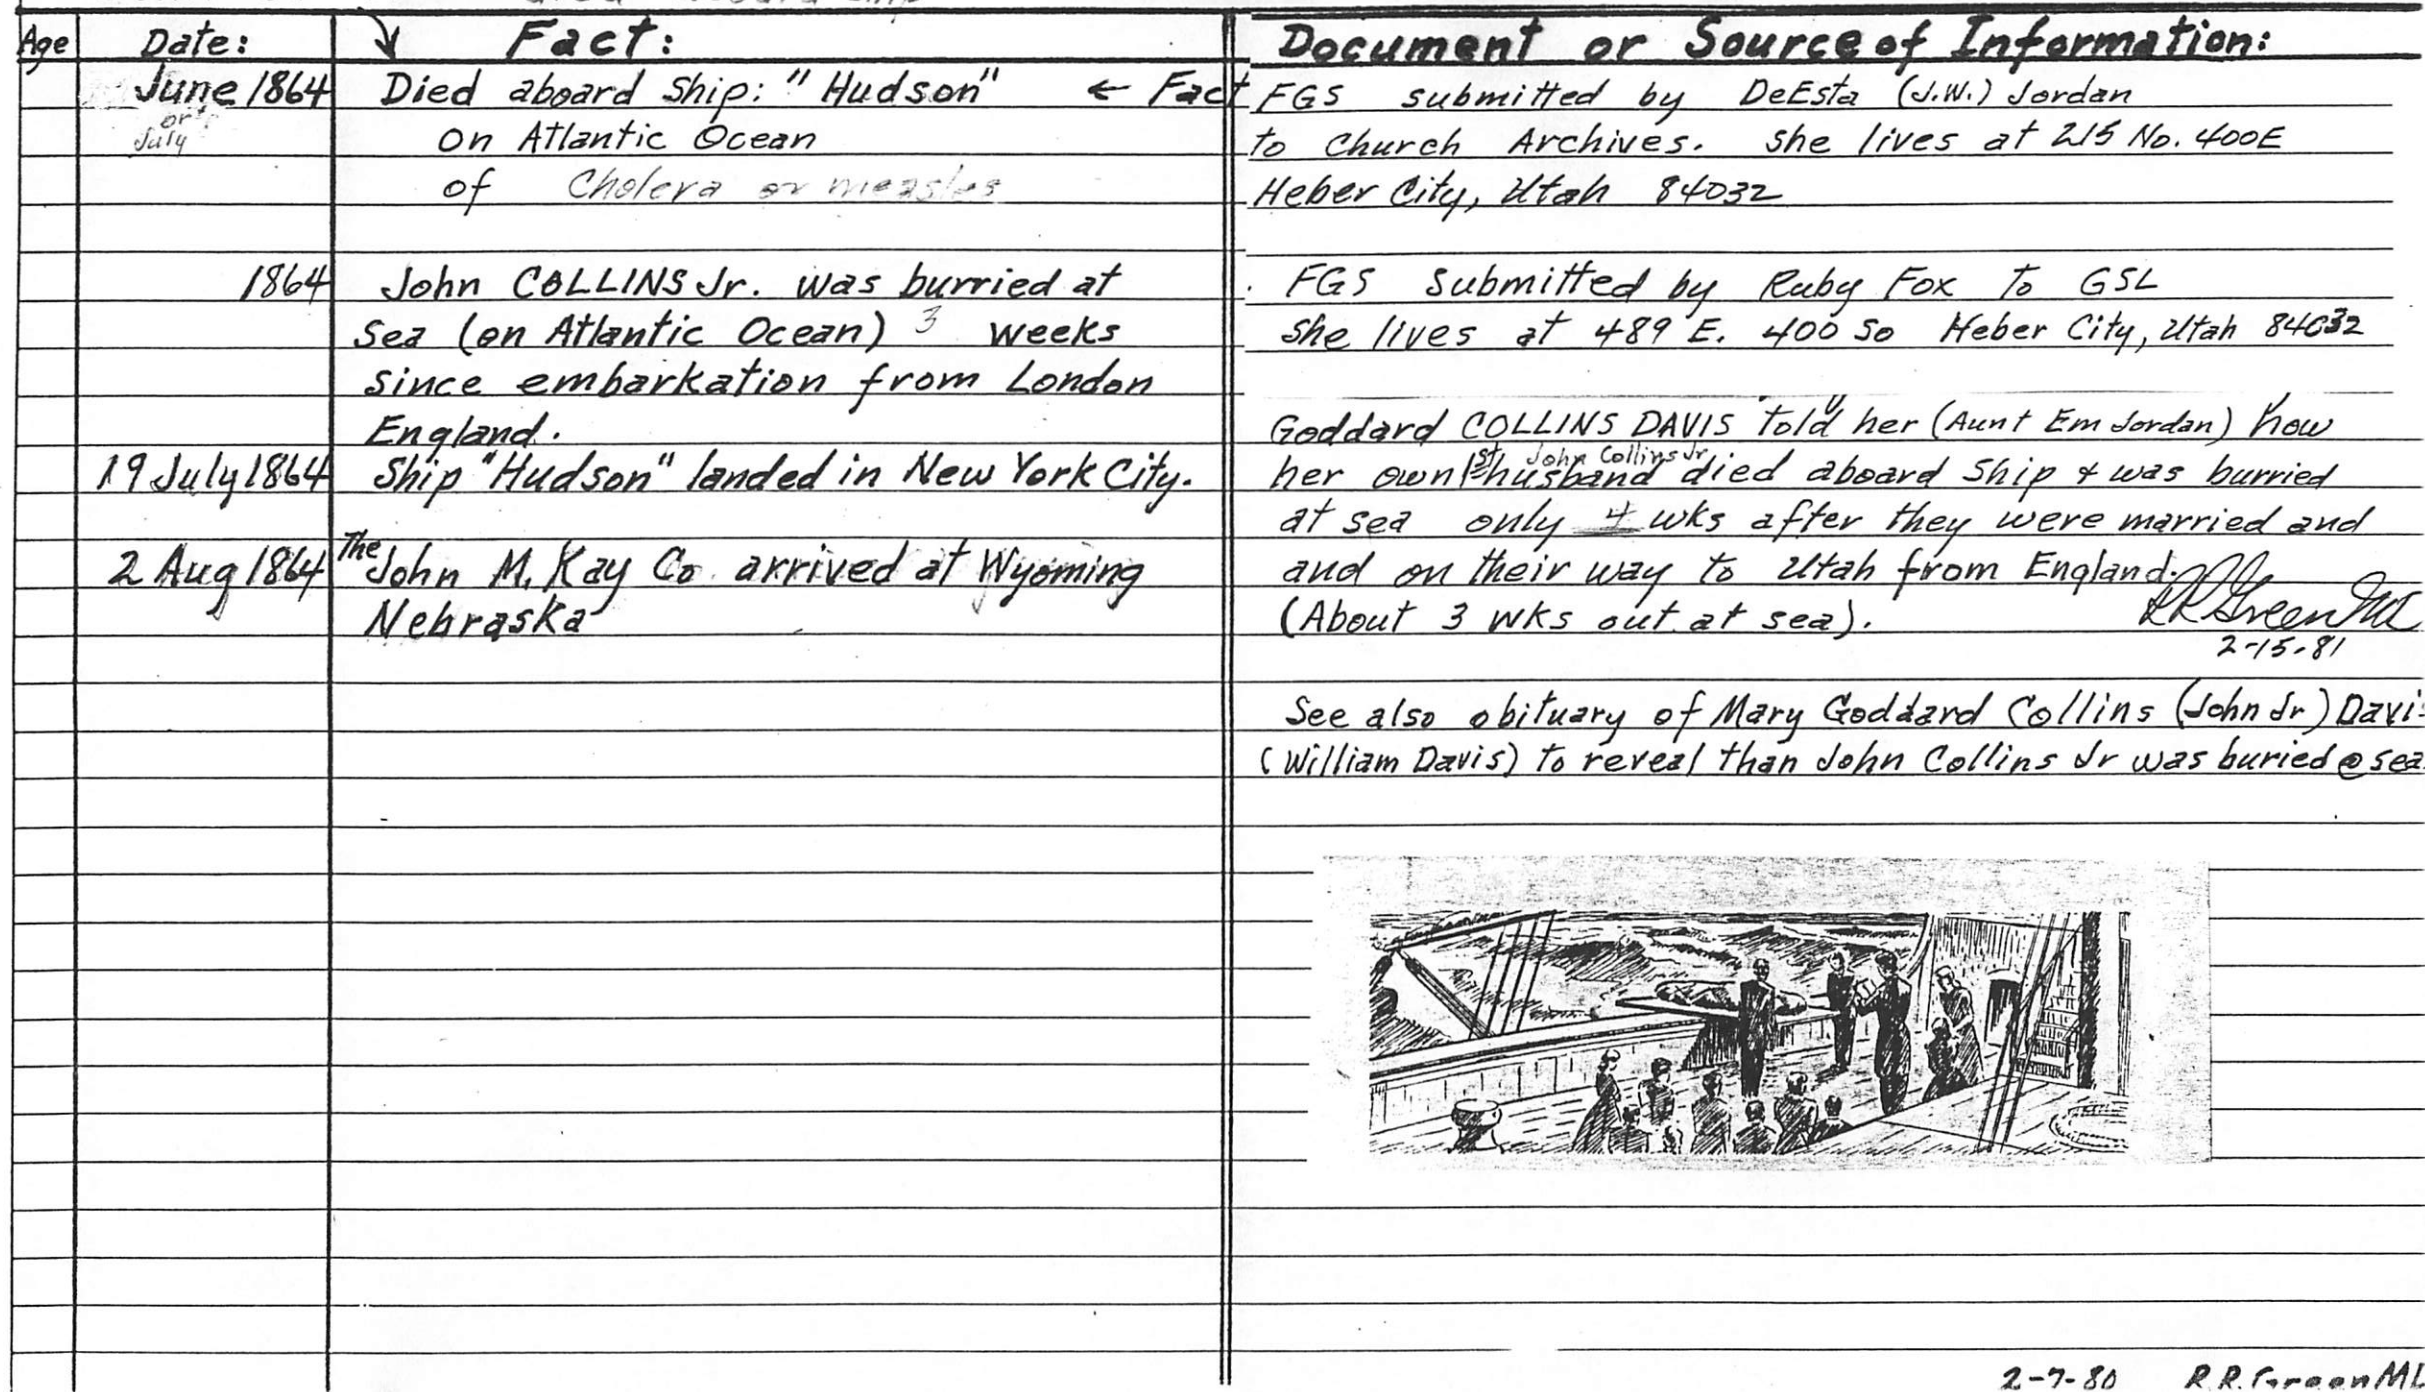 Age Date: Fact: Document or Source of Information:
June 1864 Died aboard Ship: "Hudson" ← Fact
or July
on Atlantic Ocean
of Cholera or measles
1864 John COLLINS Jr. was burried at
Sea (on Atlantic Ocean) 3 weeks
since embarkation from London
England.
19 July 1864 Ship "Hudson" landed in New York City.
2 Aug 1864 The John M. Kay Co. arrived at Wyoming
Nebraska
FGS submitted by DeEsta (J.W.) Jordan
to Church Archives. She lives at 215 No. 400E
Heber City, Utah 84032
FGS Submitted by Ruby Fox to GSL
She lives at 489 E. 400 So Heber City, Utah 84032
Goddard COLLINS DAVIS told her (Aunt Em Jordan) how
her own 1st husband John Collins Jr died aboard Ship & was burried
at sea only 4 wks after they were married and
and on their way to Utah from England.
(About 3 wks out at sea). RR Green MD
2-15-81
See also obituary of Mary Goddard Collins (John Jr) Davi
(William Davis) to reveal than John Collins Jr was buried @ sea
2-7-80 R.R. Green MD